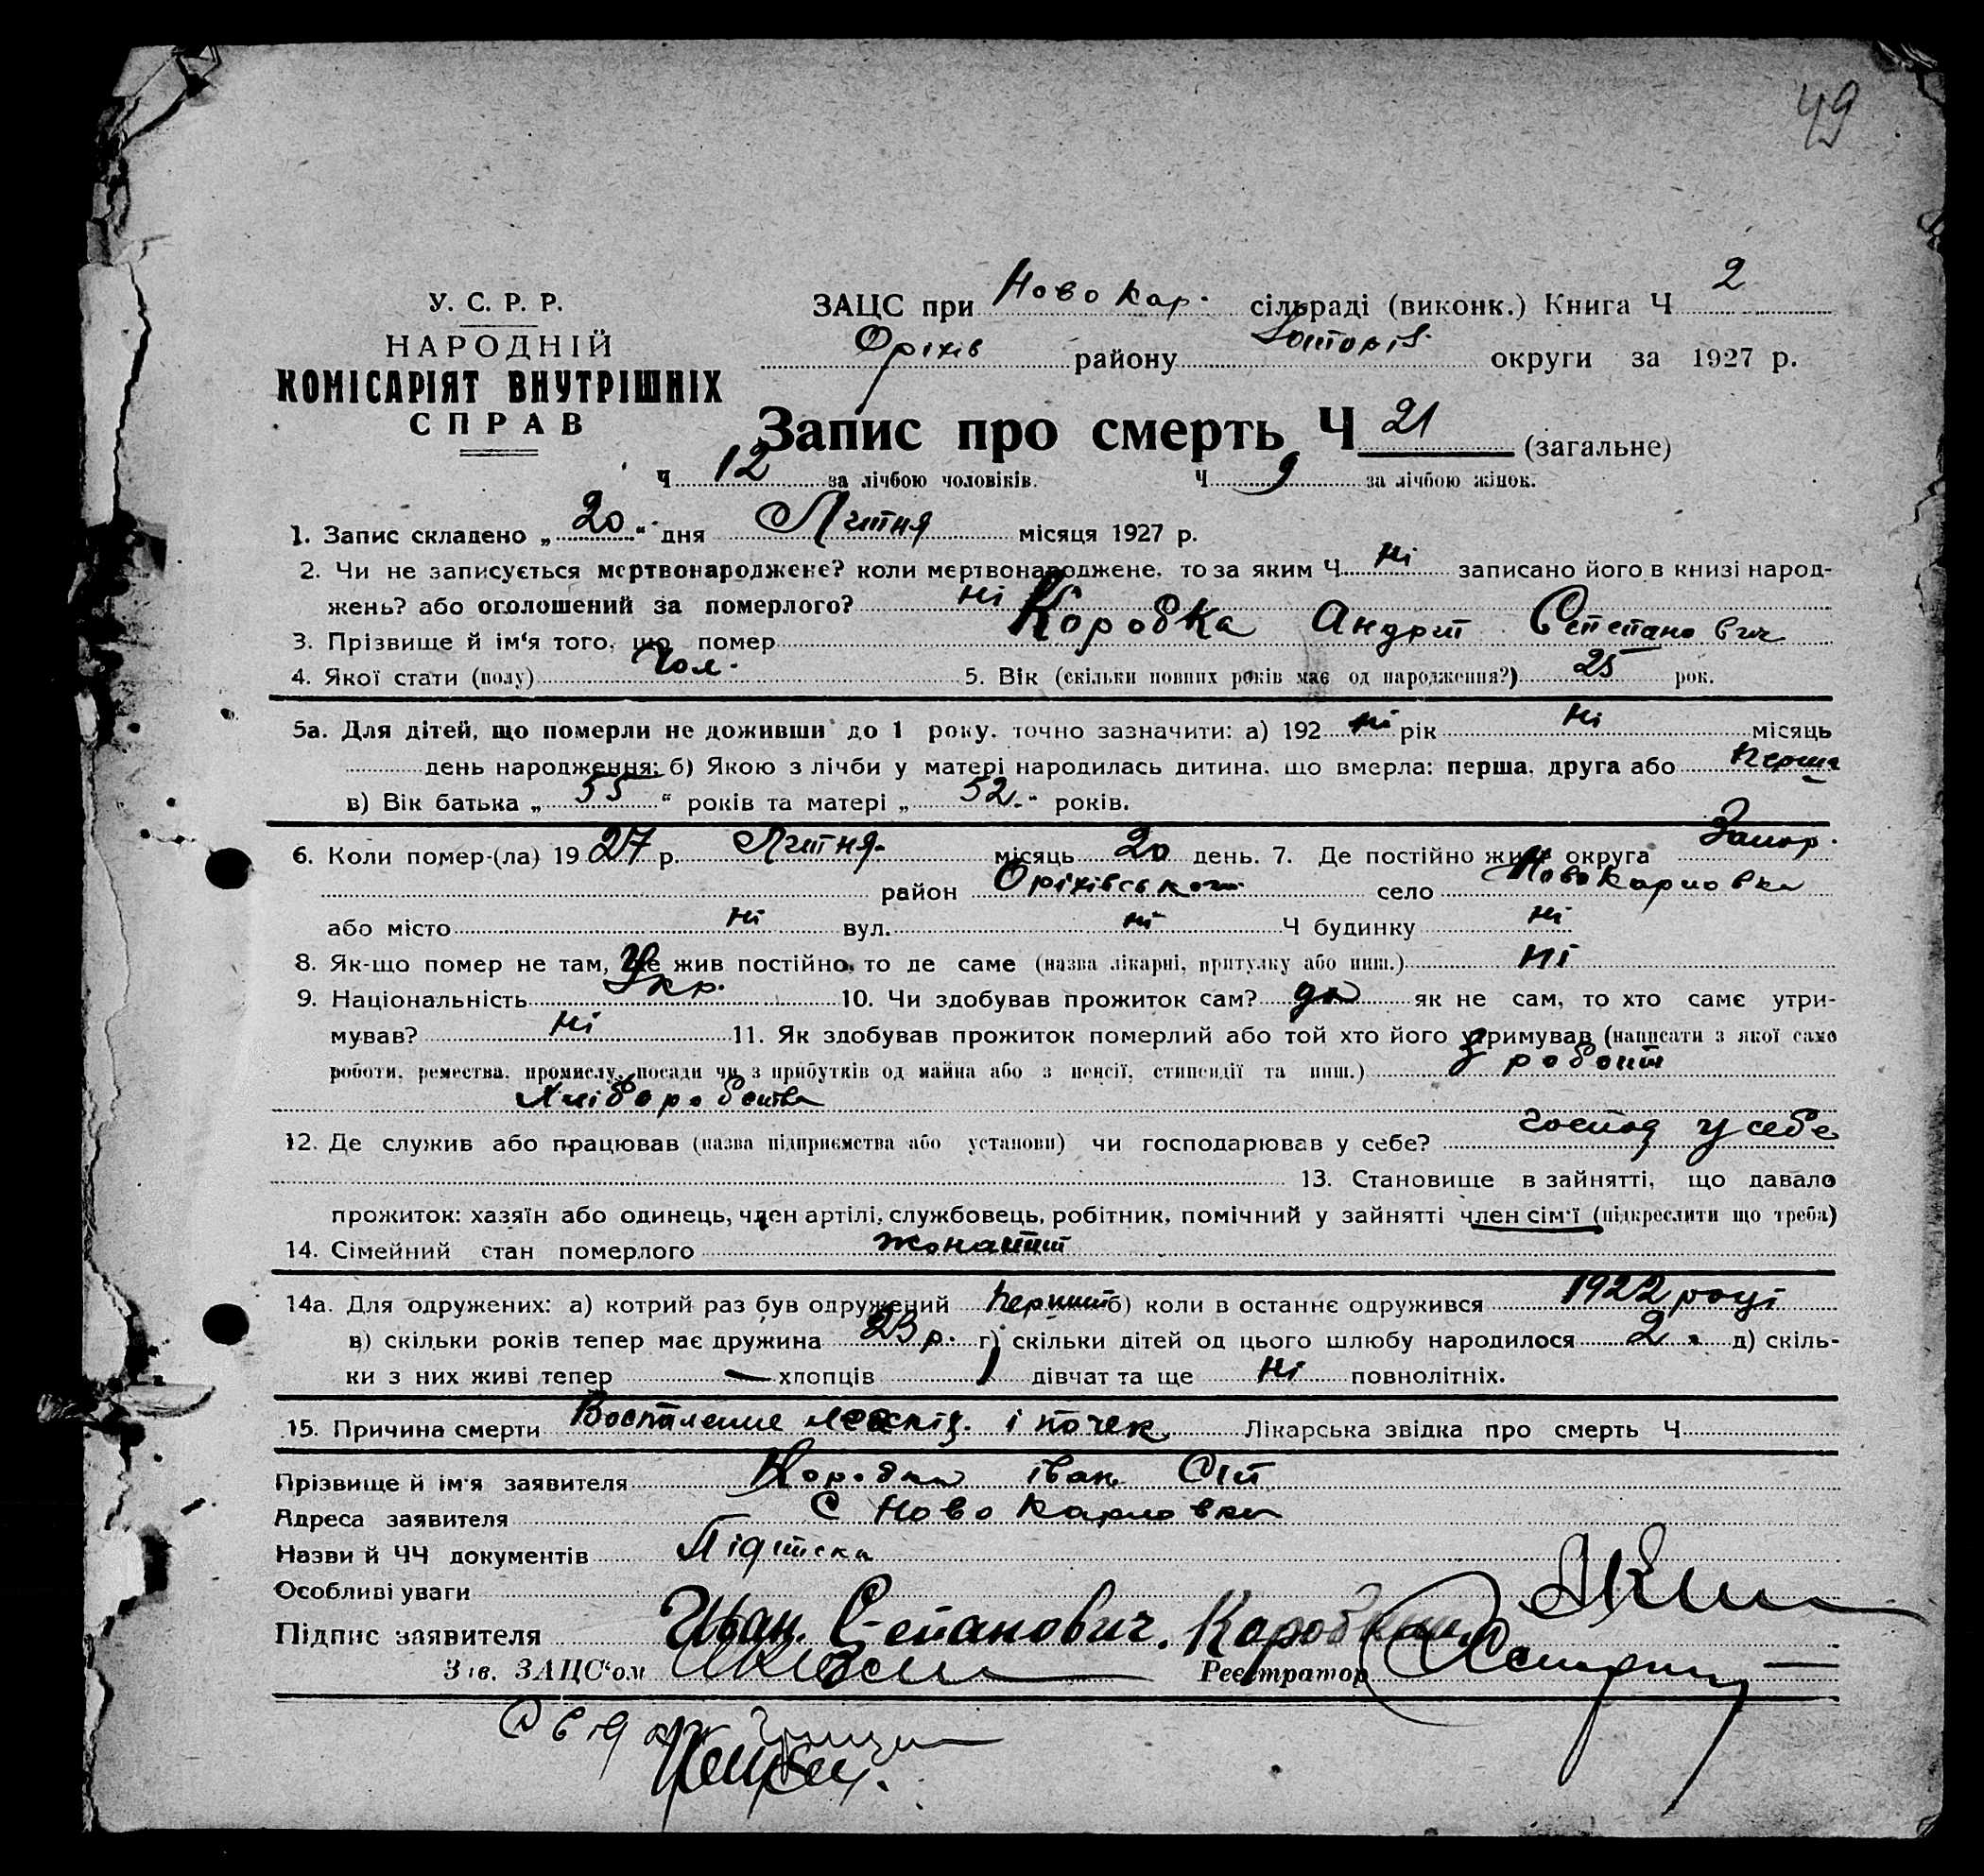 49
У. С. Р. Р.
НАРОДНІЙ
КОМІСАРІЯТ ВНУТРІШНІХ
СПРАВ
ЗАЦС при Ново Кар. сільраді (виконк.) Книга Ч 2
Оріхів району округи за 1927 р.
Запис про смерть Ч 21 (загальне)
Ч 12 за лічбою чоловіків. Ч 9 за лічбою жінок.
1. Запис складено „ 20 “ дня Лютня місяця 1927 р.
2. Чи не записується мертвонароджене? коли мертвонароджене, то за яким Ч ні записано його в книзі народ-
жень? або оголошений за померлого? ні
3. Прізвище й ім‘я того, що помер Коробка Андрій Степанович
4. Якої стати (полу) Чол. 5. Вік (скільки повних років має од народження?) 25 рок.
5а. Для дітей, що померли не доживши до 1 року, точно зазначити: а) 192 ні рік ні місяць
день народження; б) Якою з лічби у матері народилась дитина, що вмерла: перша, друга або перша
в) Вік батька „ 55 “ років та матері „ 52 “ років.
6. Коли помер-(ла) 1927 р. Лютня місяць 20 день. 7. Де постійно жив округа Запор.
район Оріхівського село Ново Карловка
або місто ні вул. ні Ч будинку ні
8. Як-що помер не там, де жив постійно, то де саме (назва лікарні, притулку або инш.) ні
9. Національність Укр. 10. Чи здобував прожиток сам? да як не сам, то хто саме утри-
мував? ні 11. Як здобував прожиток померлий або той хто його утримував (написати з якої само
роботи, ремества, промислу, посади чи з прибутків од майна або з пенсії, стипендії та инш.) з роботи
Хліборобства
12. Де служив або працював (назва підприємства або установи) чи господарював у себе? господ у себе
13. Становище в зайнятті, що давало
прожиток: хазяїн або одинець, член артілі, службовець, робітник, помічний у зайнятті член сім‘ї (підкреслити що треба)
14. Сімейний стан померлого жонатий
14а. Для одружених: а) котрий раз був одружений перший б) коли в останнє одружився 1922 році
в) скільки років тепер має дружина 23 р. г) скільки дітей од цього шлюбу народилося 2. д) скіль-
ки з них живі тепер — хлопців 1 дівчат та ще ні повнолітніх.
15. Причина смерти Воспаление і почек Лікарська звідка про смерть Ч
Прізвище й ім‘я заявителя Коробка іван Сте
Адреса заявителя С Ново Карловка
Назви й ЧЧ документів Підписка
Особливі уваги
Підпис заявителя Иван Степанович. Коробкин
Зав. ЗАЦС‘ом Реєстратор